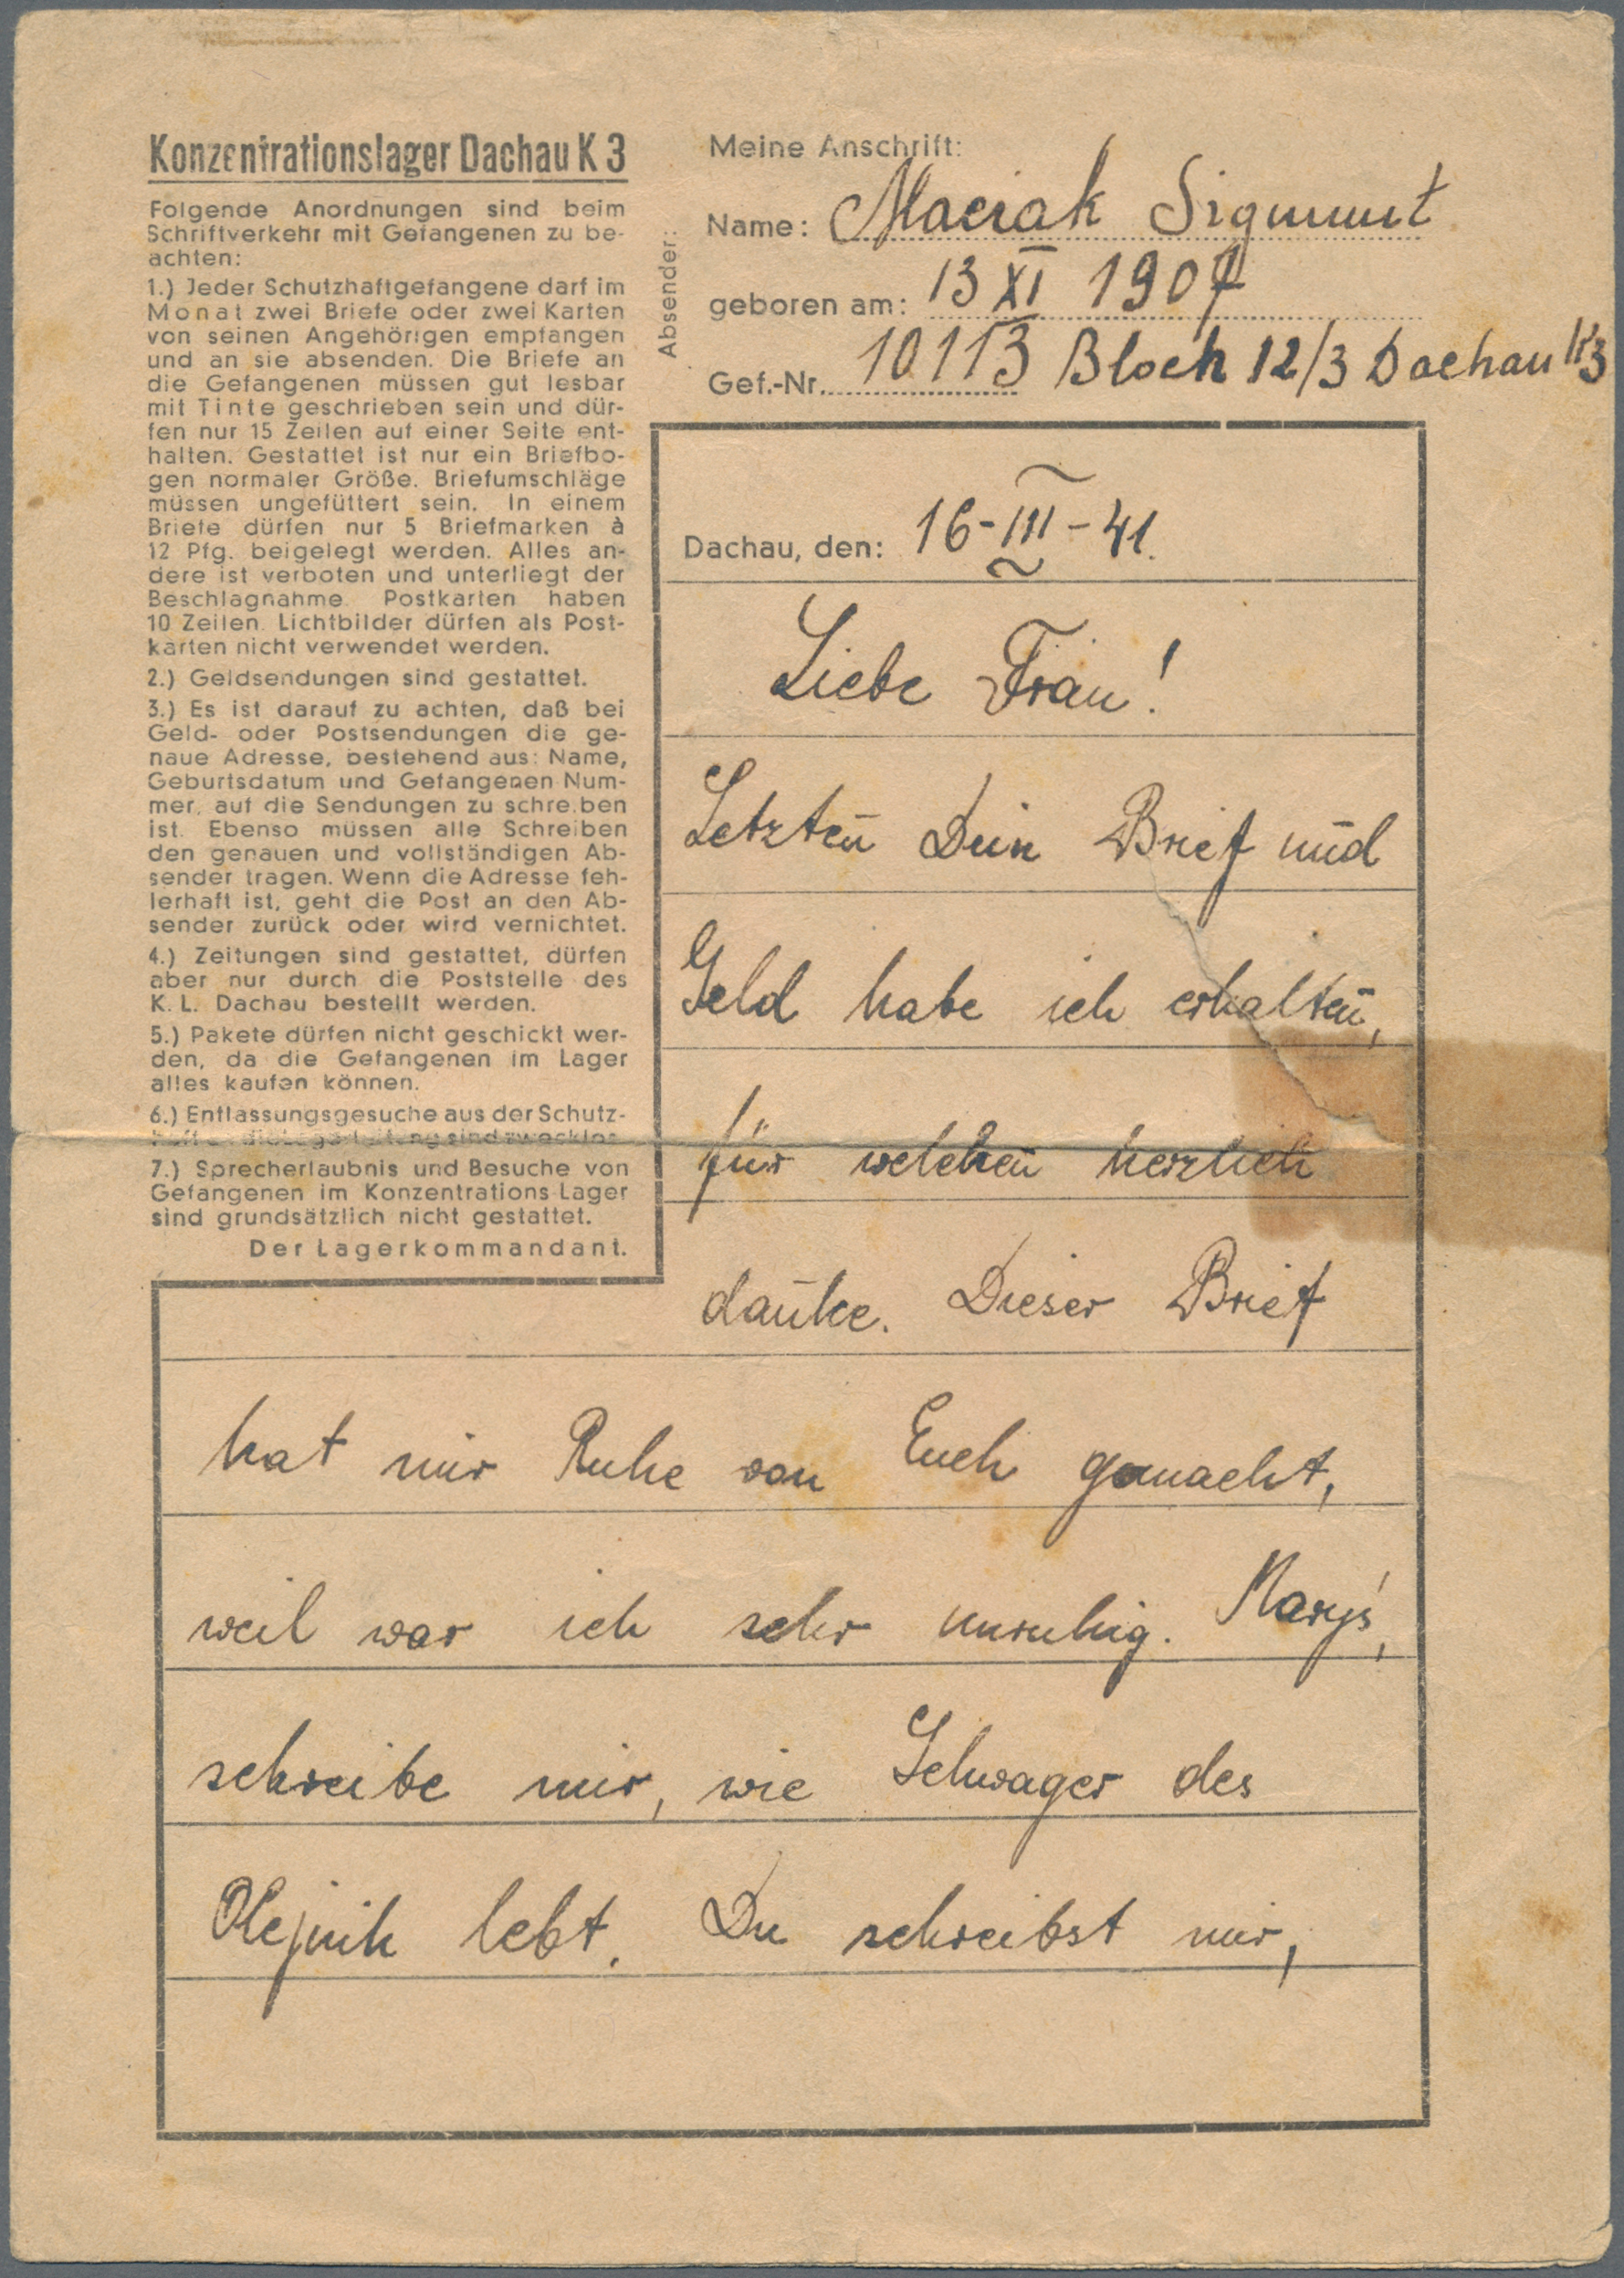 Konzentrationslager Dachau K 3
Folgende Anordnungen sind beim
Schriftverkehr mit Gefangenen zu be-
achten:
1.) Jeder Schutzhaftgefangene darf im
Monat zwei Briefe oder zwei Karten
von seinen Angehörigen empfangen
und an sie absenden. Die Briefe an
die Gefangenen müssen gut lesbar
mit Tinte geschrieben sein und dür-
fen nur 15 Zeilen auf einer Seite ent-
halten. Gestattet ist nur ein Briefbo-
gen normaler Größe. Briefumschläge
müssen ungefüttert sein. In einem
Briefe dürfen nur 5 Briefmarken à
12 Pfg. beigelegt werden. Alles an-
dere ist verboten und unterliegt der
Beschlagnahme. Postkarten haben
10 Zeilen. Lichtbilder dürfen als Post-
karten nicht verwendet werden.
2.) Geldsendungen sind gestattet.
3.) Es ist darauf zu achten, daß bei
Geld- oder Postsendungen die ge-
naue Adresse, bestehend aus: Name,
Geburtsdatum und Gefangenen-Num-
mer, auf die Sendungen zu schreiben
ist. Ebenso müssen alle Schreiben
den genauen und vollständigen Ab-
sender tragen. Wenn die Adresse feh-
lerhaft ist, geht die Post an den Ab-
sender zurück oder wird vernichtet.
4.) Zeitungen sind gestattet, dürfen
aber nur durch die Poststelle des
K. L. Dachau bestellt werden.
5.) Pakete dürfen nicht geschickt wer-
den, da die Gefangenen im Lager
alles kaufen können.
6.) Entlassungsgesuche aus der Schutz-
haft an die Lagerleitung sind zwecklos
7.) Sprecherlaubnis und Besuche von
Gefangenen im Konzentrations-Lager
sind grundsätzlich nicht gestattet.
Der Lagerkommandant.
Absender:
Meine Anschrift:
Name: Maciak Sigmunt
geboren am: 13 XI 1907
Gef.-Nr. 10113 Bloch 12/3 Dachau K3
Dachau, den: 16-III-41.
Liebe Frau!
Letzten Dein Brief und
Geld habe ich erhalten,
für welchen herzlich
danke. Dieser Brief
hat mir Ruhe von Euch gemacht,
weil war ich sehr unruhig. Maryś,
schreibe mir, wie Schwager des
Olejnik lebt. Du schreibst mir,